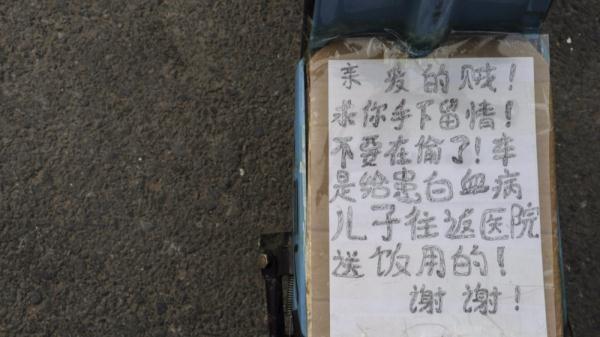 亲爱的贼！
求你手下留情！
不要在偷了！车
是给患白血病
儿子往返医院
送饭用的！
谢谢！